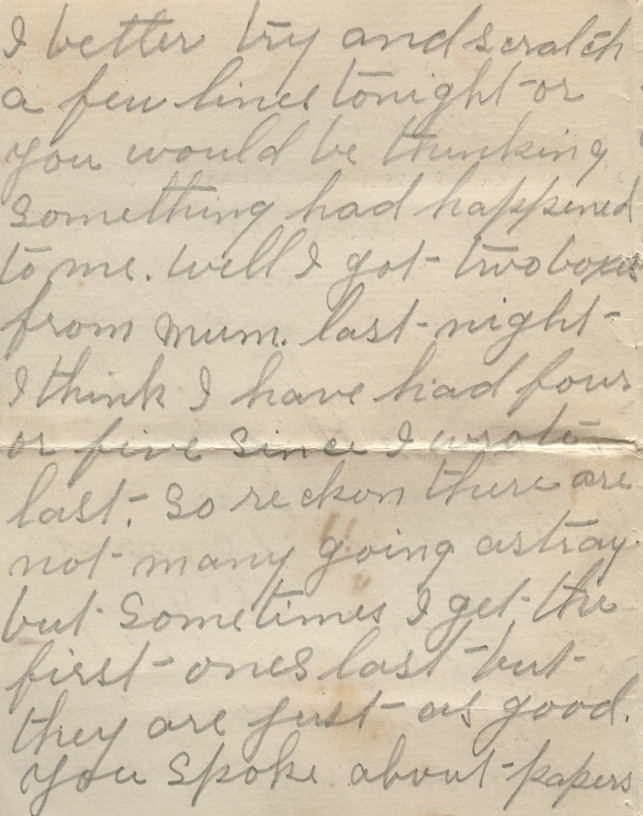 I better try and scratch
a few lines tonight or
you would be thinking
something had happened
to me. Well I got two boxes
from mum. last night
I think I have had four
or five since I wrote
last. So reckon there are
not many going astray
but sometimes I get the
first ones last but
they are just as good.
You spoke about papers